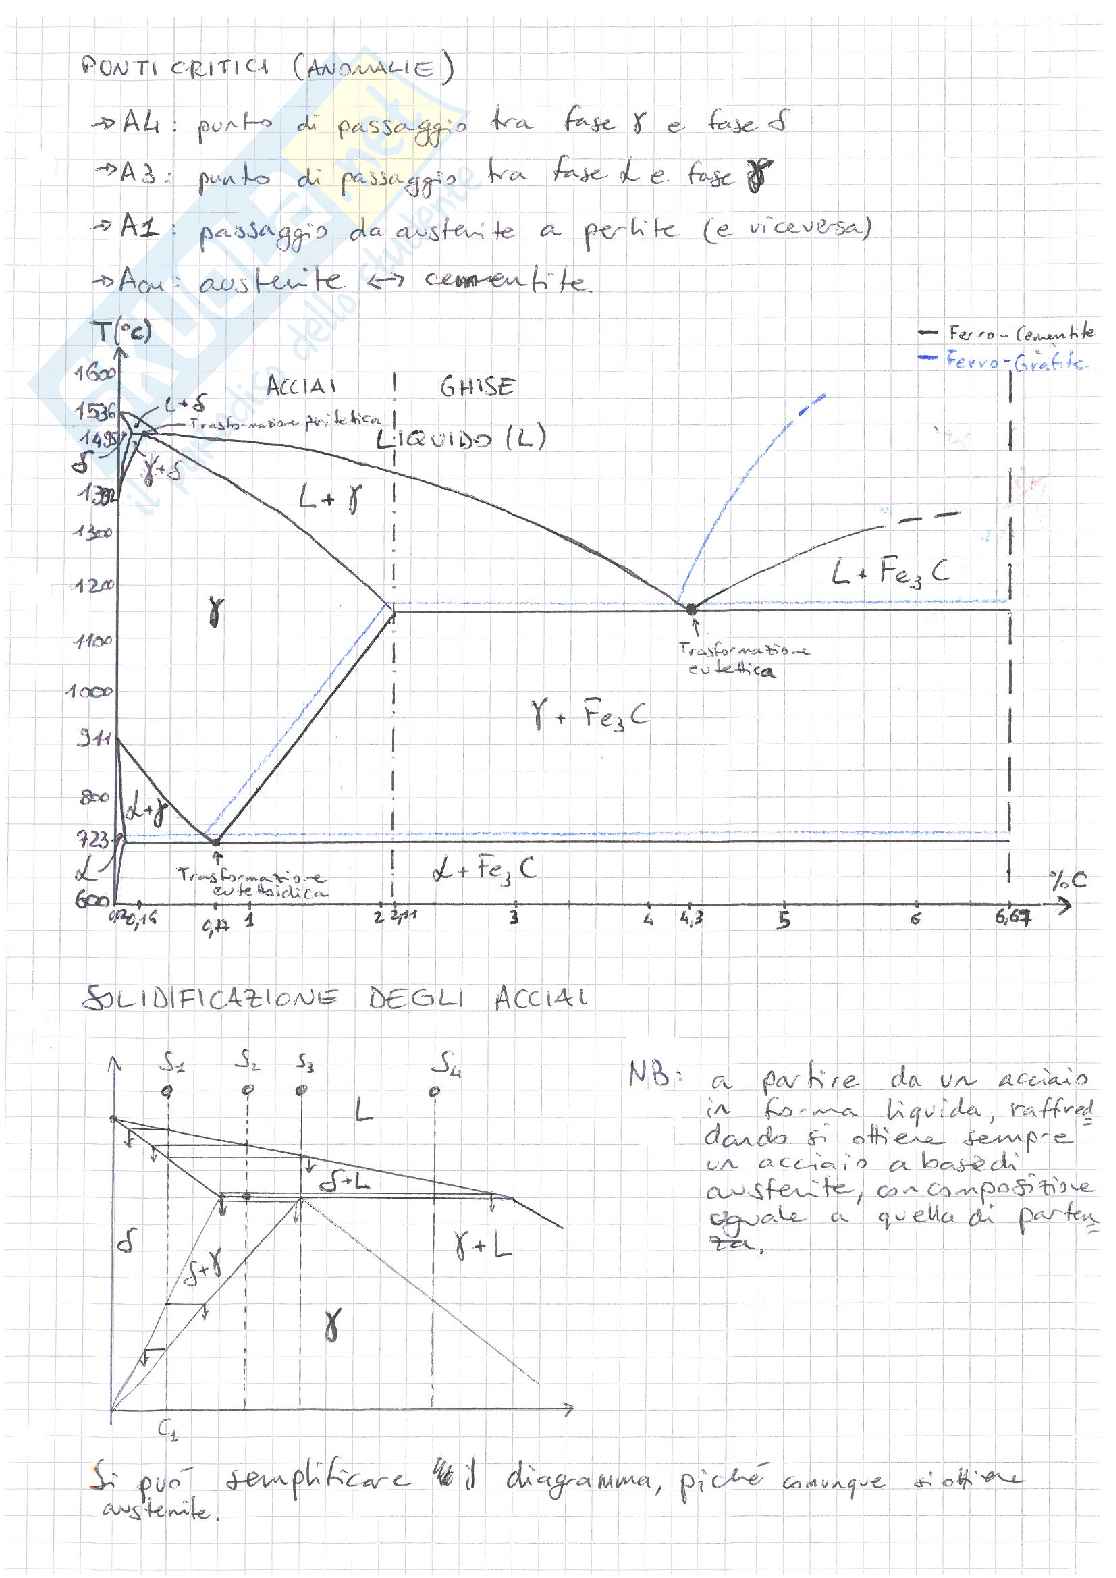 PUNTI CRITICI (ANOMALIE)
→ A4: punto di passaggio tra fase γ e fase δ
→ A3: punto di passaggio tra fase α e fase γ
→ A1: passaggio da austenite a perlite (e viceversa)
→ Acm: austenite ↔ cementite.
SKUOLA.net
il paradiso dello studente
T(°C)
— Ferro-Cementite
— Ferro-Grafite
1600
ACCIAI
GHISE
1536
L+δ
Trasformazione peritettica
1495
LIQUIDO (L)
δ
γ+δ
1392
L+γ
1300
L+Fe3C
1200
γ
1100
Trasformazione
eutettica
1000
γ+Fe3C
911
800
α+γ
723
α
Trasformazione
eutettoidica
α+Fe3C
%C
600
0,16
0,77
1
2
2,11
3
4
4,3
5
6
6,67
SOLIDIFICAZIONE DEGLI ACCIAI
S1
S2
S3
S4
L
δ+L
δ
δ+γ
γ+L
γ
C1
NB: a partire da un acciaio
in forma liquida, raffred
dando si ottiene sempre
un acciaio a base di
austenite, con composizione
uguale a quella di parten
za.
Si può semplificare il diagramma, piché comunque si ottiene
austenite.